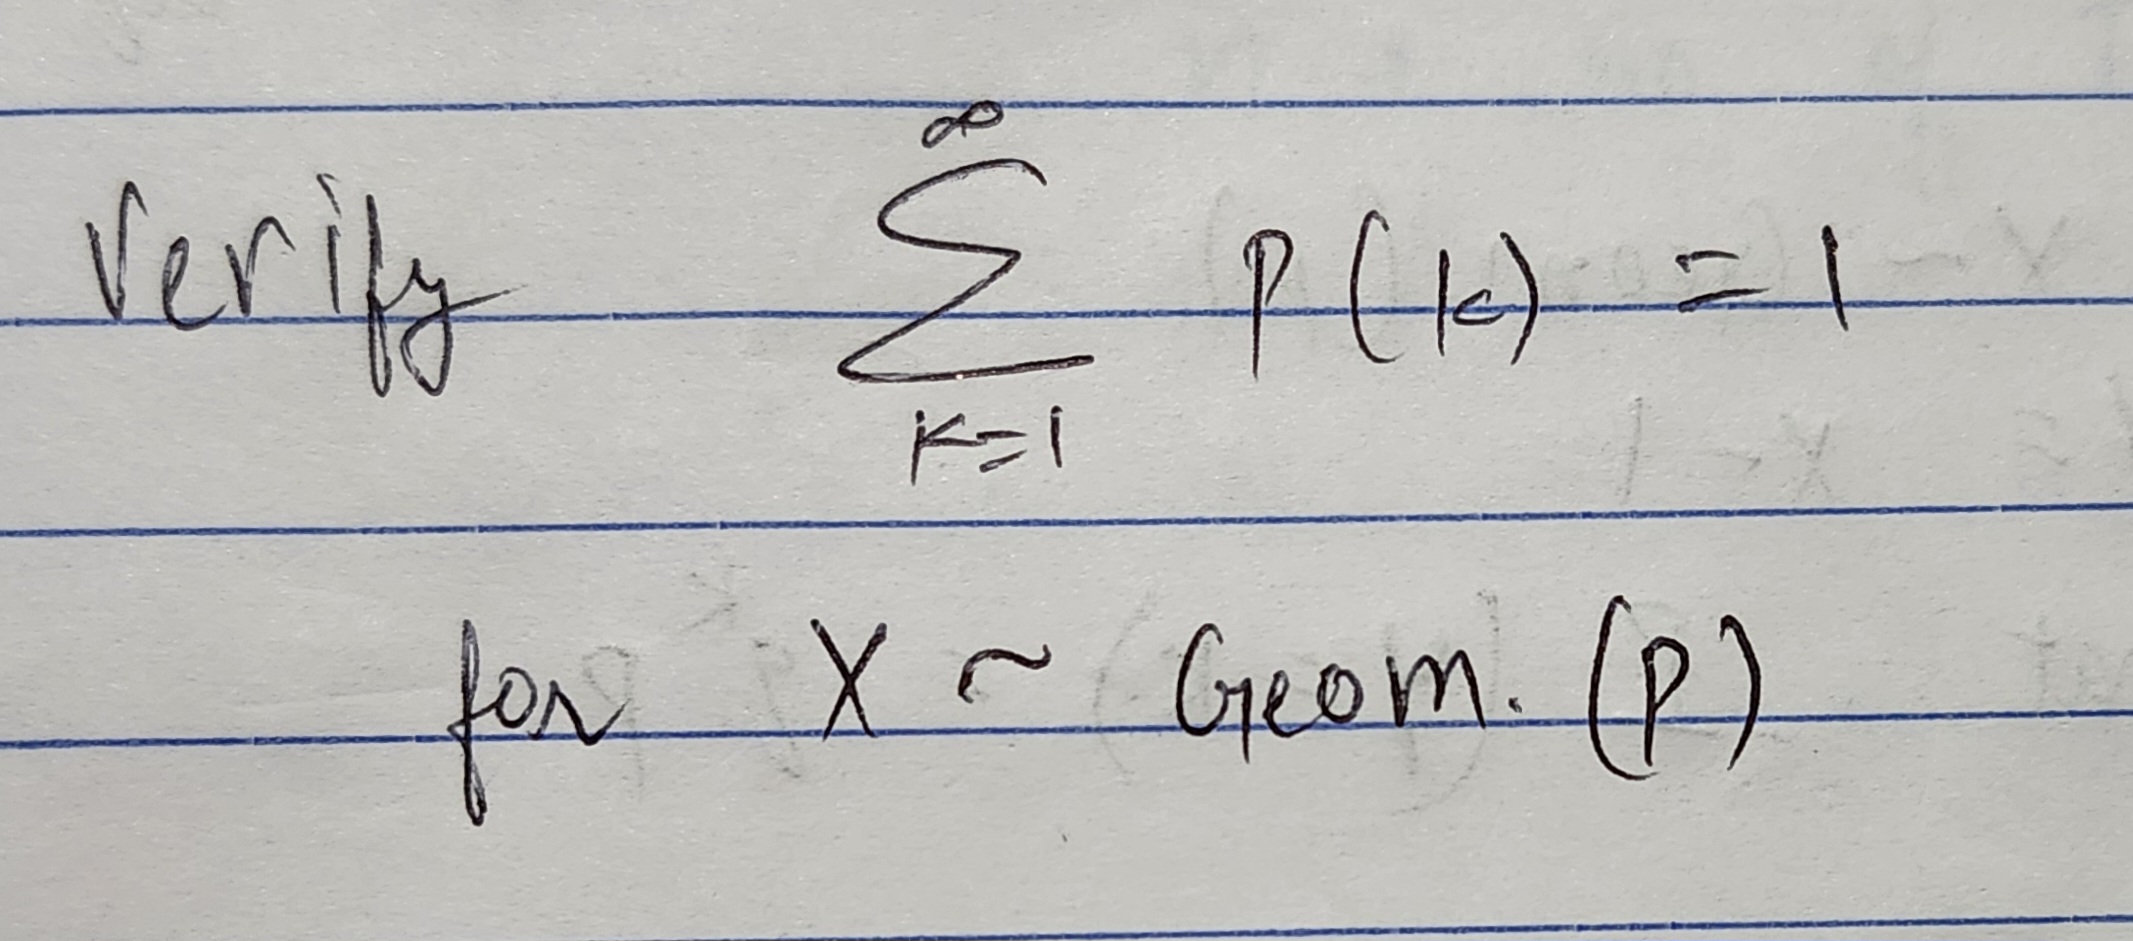 Verify ∑_{k=1}^{∞} P(k) = 1
for X ~ Geom. (P)